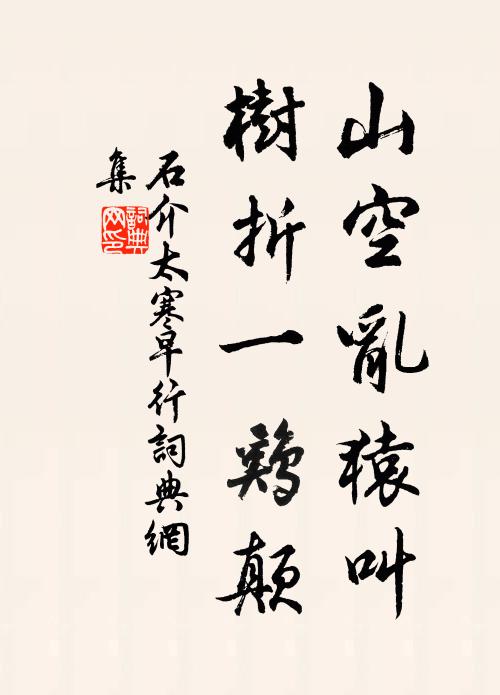 山空亂猿叫
樹折一鷄顛
石介太寒早行詞典網
集
詞典
网印